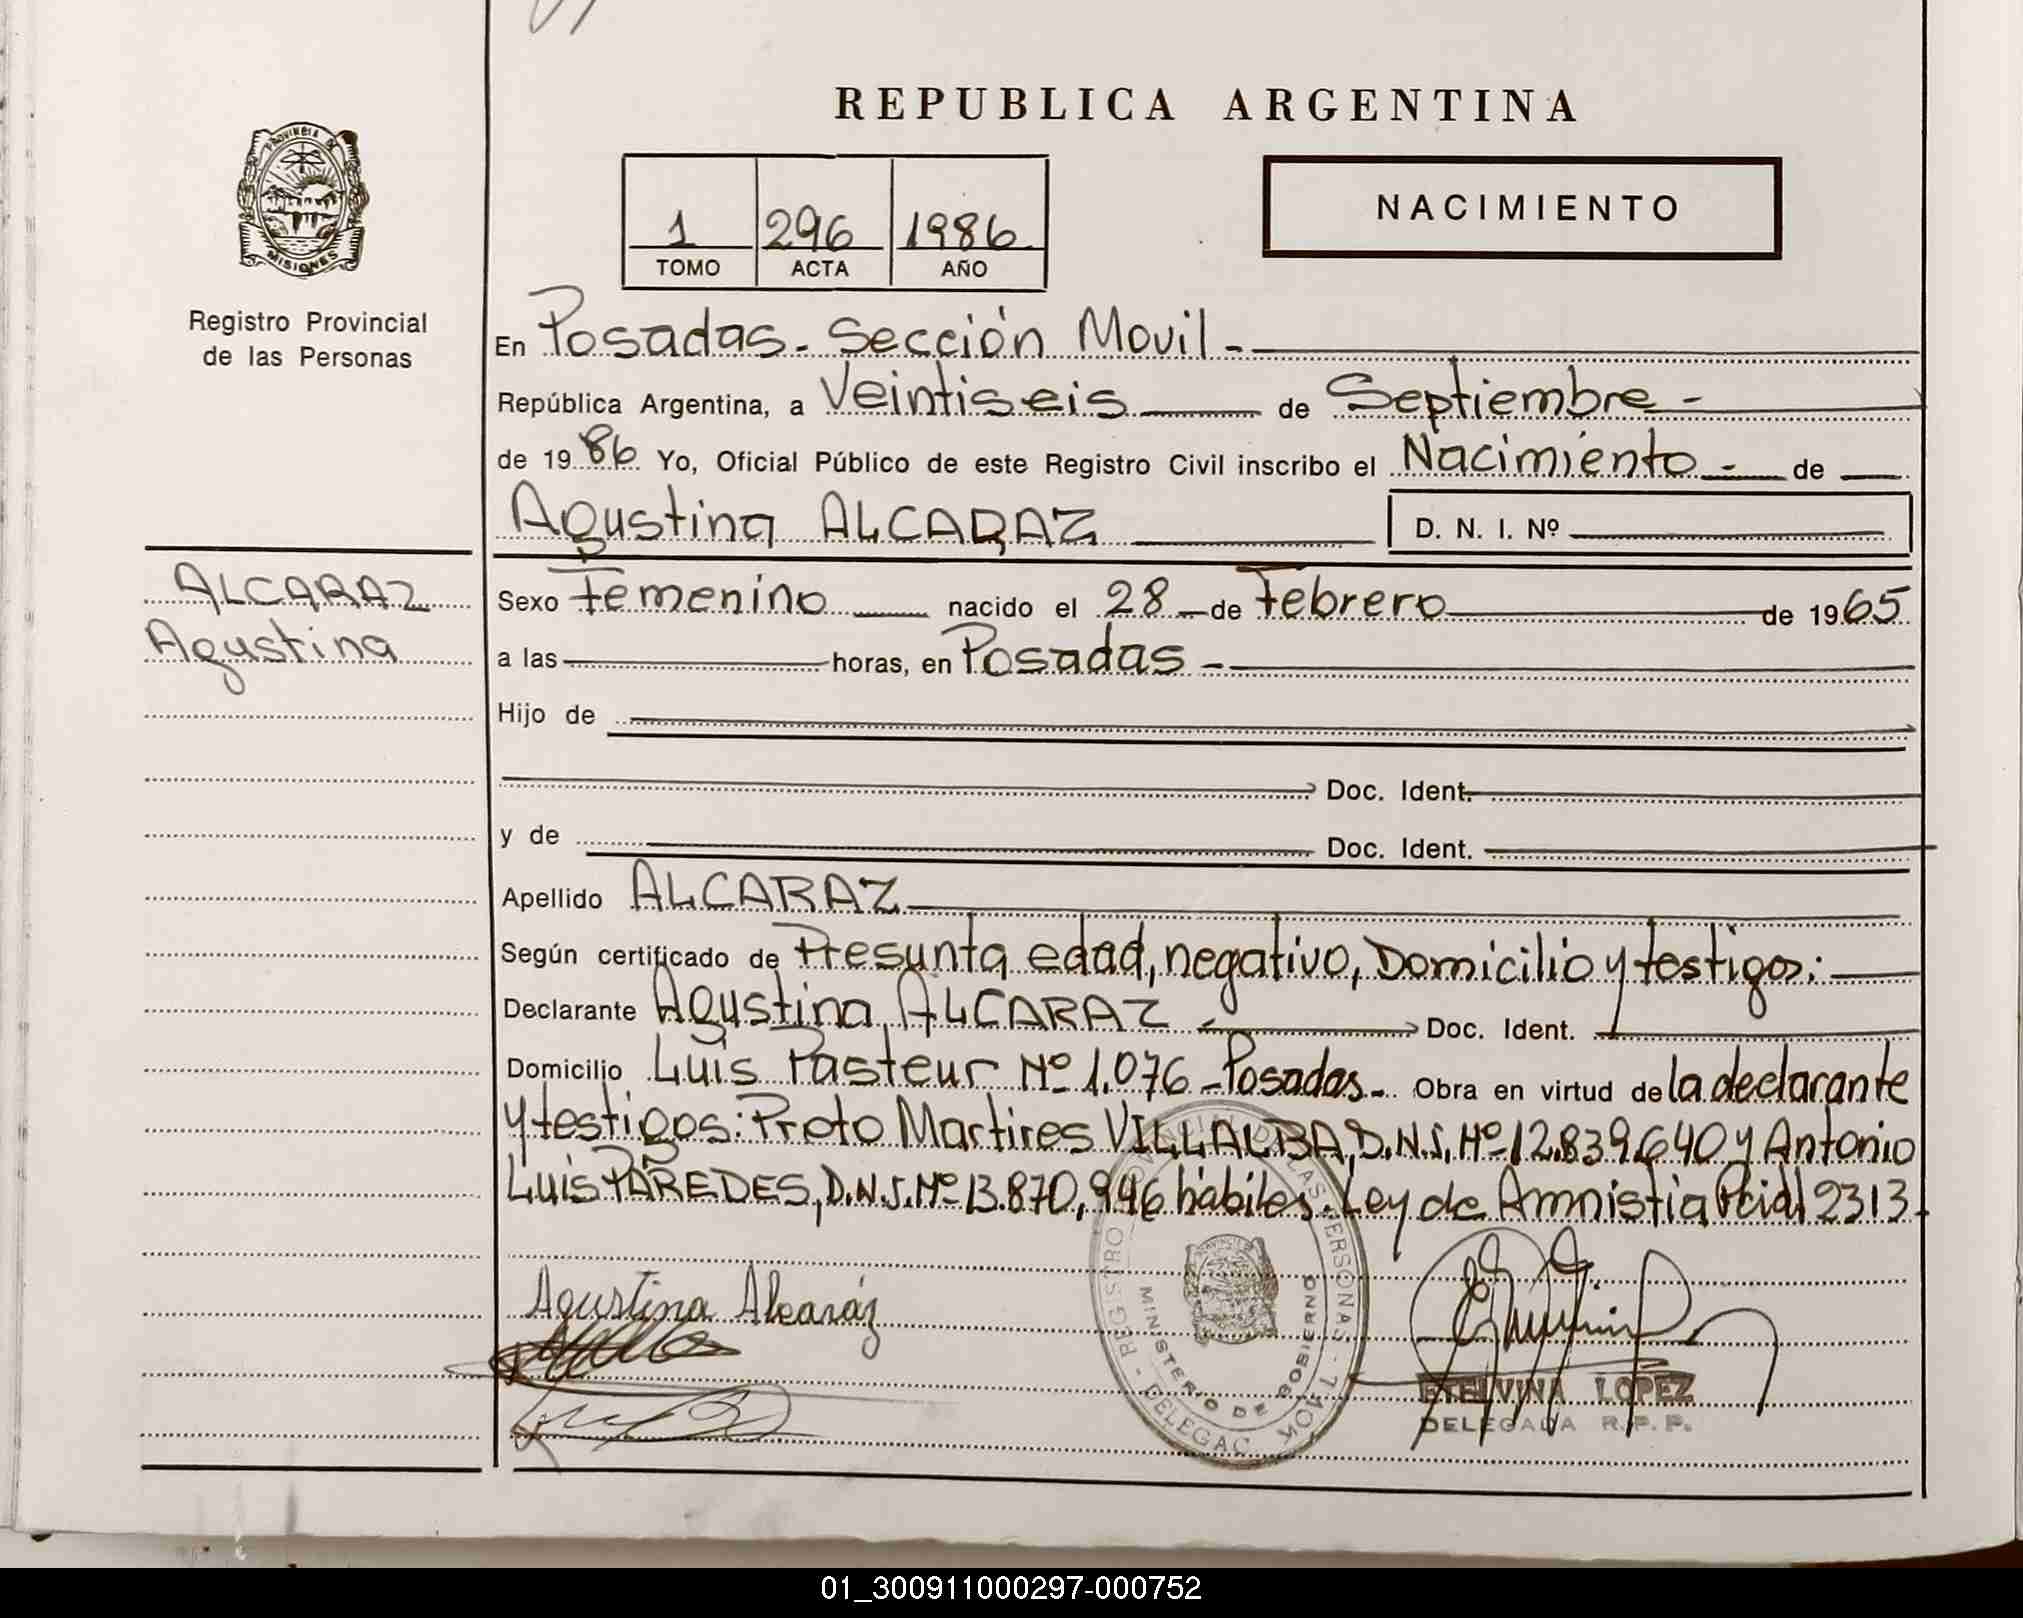 REPUBLICA ARGENTINA
PROVINCIA DE
MISIONES
Registro Provincial
de las Personas
1 296 1986
TOMO ACTA AÑO
NACIMIENTO
En Posadas - Sección Movil -
República Argentina, a Veintiseis de Septiembre -
de 1986 Yo, Oficial Público de este Registro Civil inscribo el Nacimiento - de
Agustina ALCARAZ D. N. I. Nº
ALCARAZ
Agustina
Sexo Femenino nacido el 28 de Febrero de 1965
a las horas, en Posadas -
Hijo de
Doc. Ident.
y de Doc. Ident.
Apellido ALCARAZ
Según certificado de Presunta edad, negativo, Domicilio y testigos:
Declarante Agustina ALCARAZ - Doc. Ident.
Domicilio Luis Pasteur Nº 1.076 - Posadas - Obra en virtud de la declarante
y testigos: Proto Martires VILLALBA, D.N.I. Nº 12.839.640 y Antonio
Luis PAREDES, D.N.I. Nº 13.870,946 hábiles. Ley de Amnistia Pcial 2313 -
Agustina Alcaráz
MINISTERIO DE GOBIERNO
ETELVINA LOPEZ
DELEGADA R. P. P.
01_300911000297-000752